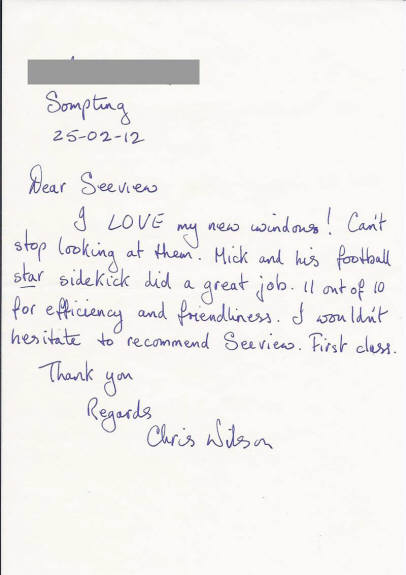 Sompting
25-02-12
Dear Seeview
I LOVE my new windows! Can't
stop looking at them. Mick and his football
star sidekick did a great job. 11 out of 10
for efficiency and friendliness. I wouldn't
hesitate to recommend Seeview. First class.
Thank you
Regards
Chris Wilson